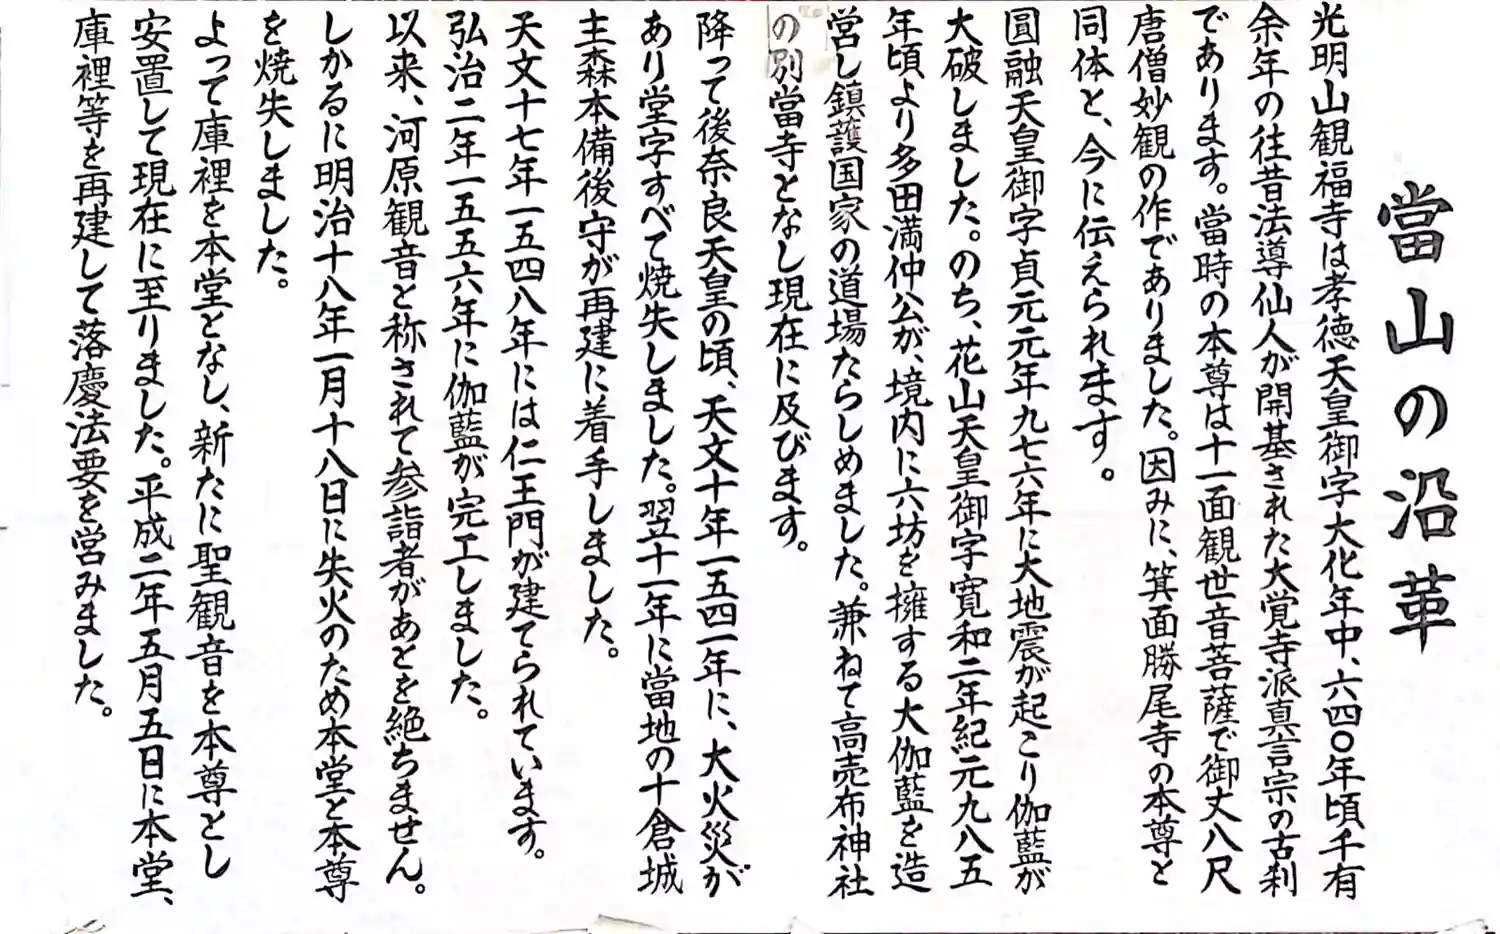 當山の沿革
光明山観福寺は孝徳天皇御字大化年中、六四〇年頃千有
余年の往昔法導仙人が開基された大覚寺派真言宗の古刹
であります。當時の本尊は十一面観世音菩薩で御丈八尺
唐僧妙観の作でありました。因みに、箕面勝尾寺の本尊と
同体と、今に伝えられます。
圓融天皇御字貞元元年九七六年に大地震が起こり伽藍が
大破しました。のち、花山天皇御字寛和二年紀元九八五
年頃より多田満仲公が、境内に六坊を擁する大伽藍を造
営し鎮護国家の道場たらしめました。兼ねて高売布神社
の別當寺となし現在に及びます。
降って後奈良天皇の頃、天文十年一五四一年に、大火災が
あり堂字すべて焼失しました。翌十一年に當地の十倉城
主森本備後守が再建に着手しました。
天文十七年一五四八年には仁王門が建てられています。
弘治二年一五五六年に伽藍が完工しました。
以来、河原観音と称されて参詣者があとを絶ちません。
しかるに明治十八年一月十八日に失火のため本堂と本尊
を焼失しました。
よって庫裡を本堂となし、新たに聖観音を本尊とし
安置して現在に至りました。平成二年五月五日に本堂、
庫裡等を再建して落慶法要を営みました。